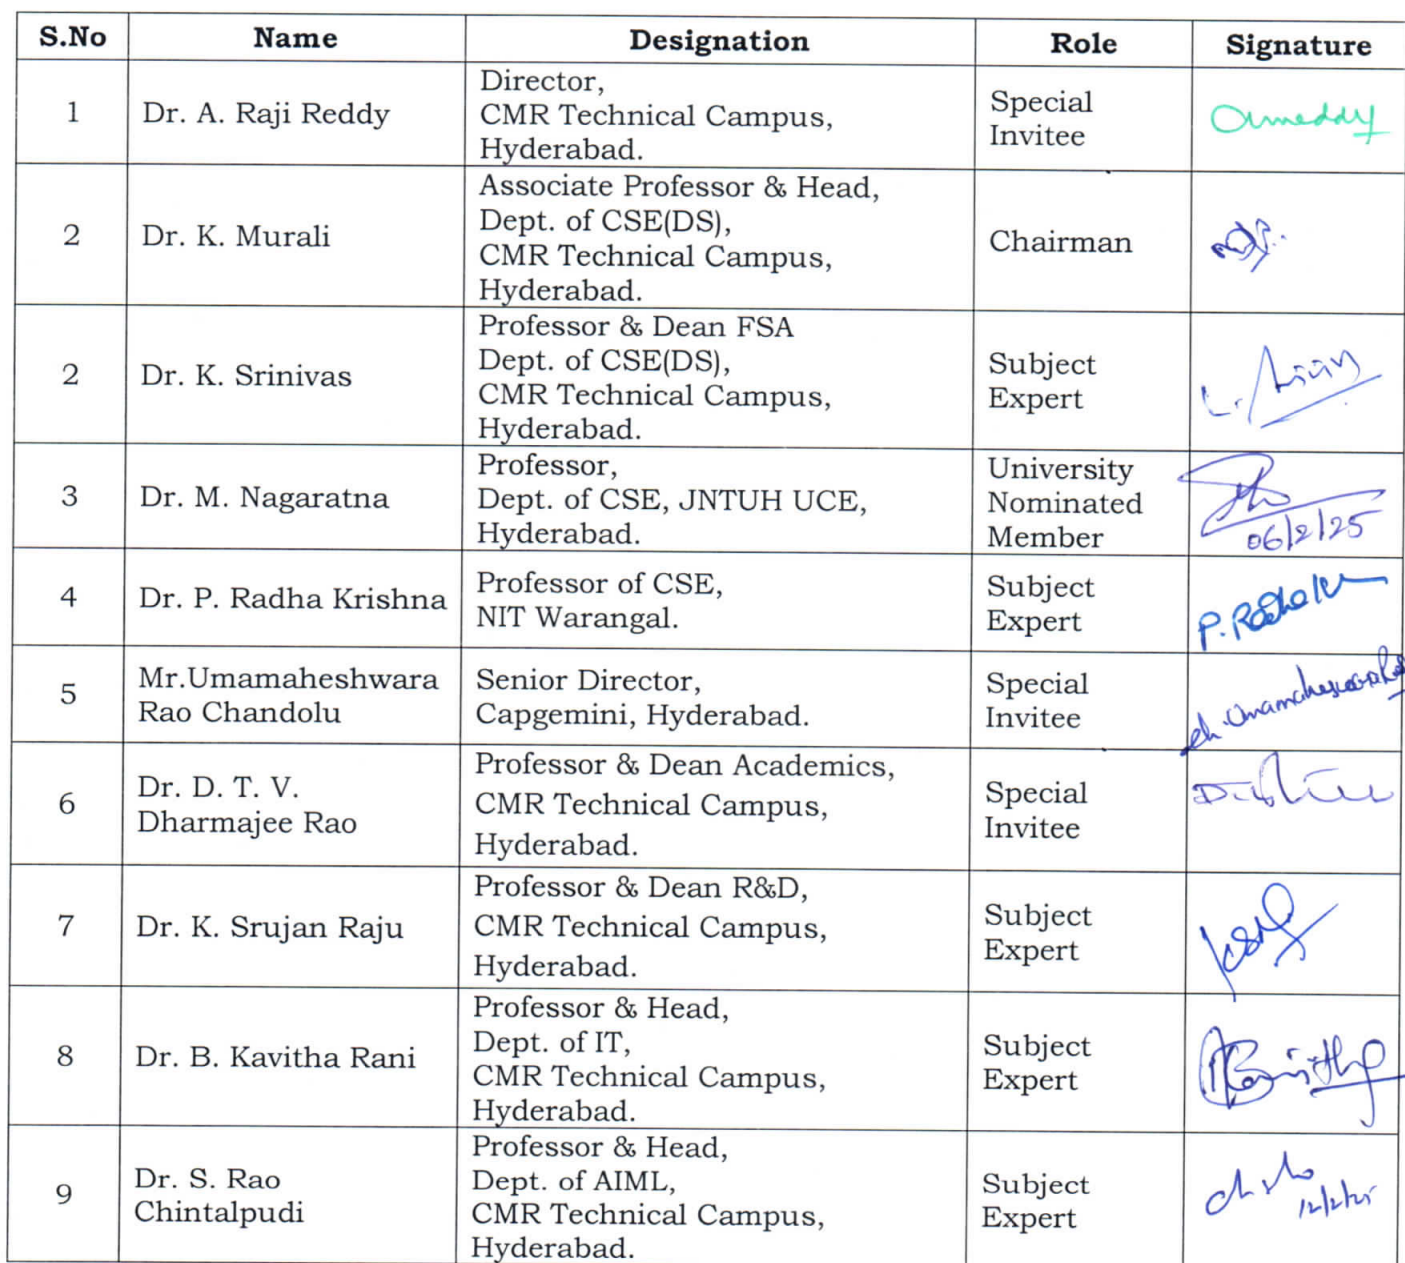 S.No Name Designation Role Signature
1 Dr. A. Raji Reddy Director,
CMR Technical Campus,
Hyderabad. Special
Invitee
2 Dr. K. Murali Associate Professor & Head,
Dept. of CSE(DS),
CMR Technical Campus,
Hyderabad. Chairman
2 Dr. K. Srinivas Professor & Dean FSA
Dept. of CSE(DS),
CMR Technical Campus,
Hyderabad. Subject
Expert
3 Dr. M. Nagaratna Professor,
Dept. of CSE, JNTUH UCE,
Hyderabad. University
Nominated
Member
06/2/25
4 Dr. P. Radha Krishna Professor of CSE,
NIT Warangal. Subject
Expert
5 Mr.Umamaheshwara
Rao Chandolu Senior Director,
Capgemini, Hyderabad. Special
Invitee
6 Dr. D. T. V.
Dharmajee Rao Professor & Dean Academics,
CMR Technical Campus,
Hyderabad. Special
Invitee
7 Dr. K. Srujan Raju Professor & Dean R&D,
CMR Technical Campus,
Hyderabad. Subject
Expert
8 Dr. B. Kavitha Rani Professor & Head,
Dept. of IT,
CMR Technical Campus,
Hyderabad. Subject
Expert
9 Dr. S. Rao
Chintalpudi Professor & Head,
Dept. of AIML,
CMR Technical Campus,
Hyderabad. Subject
Expert
12/2/25